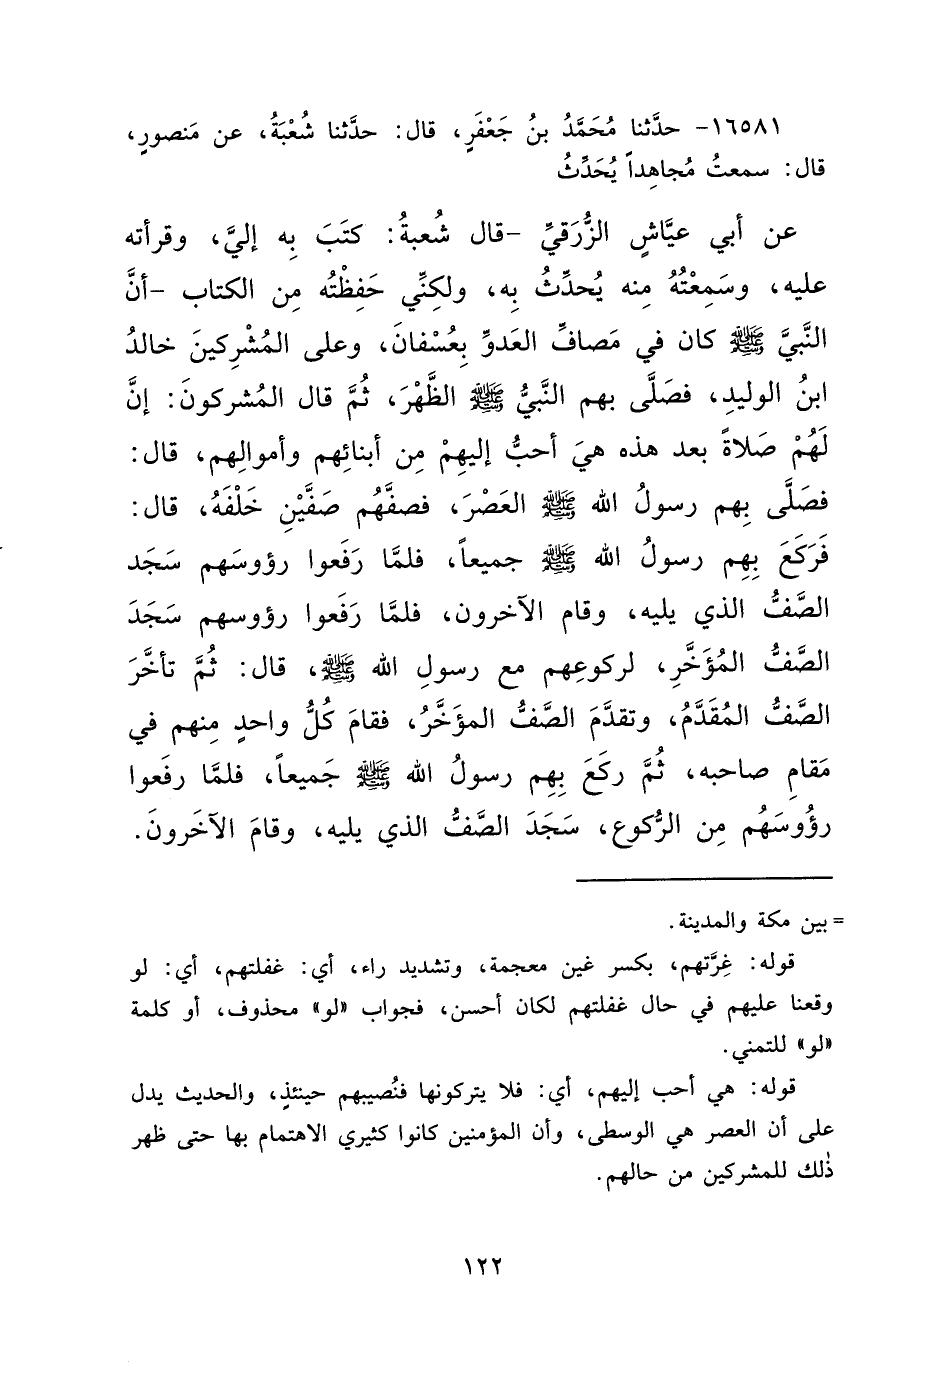 ١٦٥٨١- حدَّثنا مُحَمَّدُ بنُ جَعْفَرٍ، قال: حدَّثنا شُعْبَةُ، عن مَنصورٍ،
قال: سمعتُ مُجاهِداً يُحَدِّثُ
عن أبي عيَّاشٍ الزُّرَقيِّ -قال شُعبةُ: كتَبَ بِه إليَّ، وقرأته
عليه، وسَمِعْتُهُ مِنه يُحدِّثُ به، ولكِنِّي حَفِظْتُه مِن الكتاب -أنَّ
النَّبيَّ ﷺ كان في مَصافِّ العَدوِّ بِعُسْفانَ، وعلى المُشْرِكينَ خالدُ
ابنُ الوليدِ، فصَلَّى بهم النَّبيُّ ﷺ الظَّهْرَ، ثُمَّ قال المُشركونَ: إنَّ
لَهُمْ صَلاةً بعد هذه هيَ أحبُّ إليهِمْ مِن أبنائِهم وأموالِهم، قال:
فصَلَّى بِهم رسولُ الله ﷺ العَصْرَ، فصفَّهُم صَفَّيْنِ خَلْفَهُ، قال:
فَرَكَعَ بِهِم رسولُ الله ﷺ جميعاً، فلمَّا رَفَعوا رؤوسَهم سَجَد
الصَّفُّ الذي يليه، وقام الآخرون، فلمَّا رَفَعوا رؤوسهم سَجَدَ
الصَّفُّ المُؤَخَّرِ، لركوعِهم مع رسولِ الله ﷺ، قال: ثُمَّ تأخَّرَ
الصَّفُّ المُقَدَّمُ، وتقدَّمَ الصَّفُّ المؤَخَّرُ، فقامَ كُلُّ واحدٍ مِنهم في
مَقامِ صاحبه، ثُمَّ ركَعَ بِهِم رسولُ الله ﷺ جَميعاً، فلمَّا رفَعوا
رؤُوسَهُم مِن الرُّكوع، سَجَدَ الصَّفُّ الذي يليه، وقامَ الآخَرونَ.
= بين مكة والمدينة.
قوله: غِرَّتهم، بكسر غين معجمة، وتشديد راء، أي: غفلتهم، أي: لو
وقعنا عليهم في حال غفلتهم لكان أحسن، فجواب «لو» محذوف، أو كلمة
«لو» للتمني.
قوله: هي أحب إليهم، أي: فلا يتركونها فنُصيبهم حينئذٍ، والحديث يدل
على أن العصر هي الوسطى، وأن المؤمنين كانوا كثيري الاهتمام بها حتى ظهر
ذٰلك للمشركين من حالهم.
١٢٢